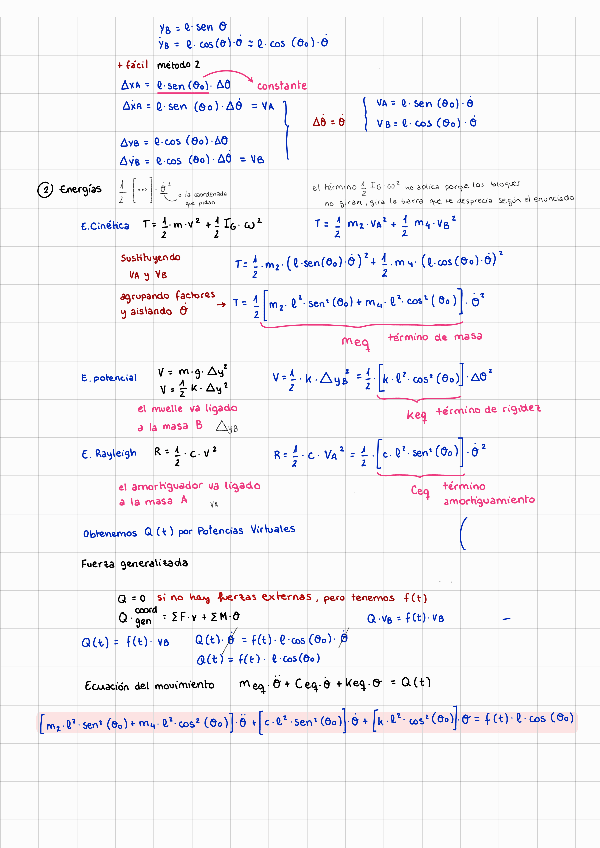 y_B = ℓ· sen θ
ẏ_B = ℓ· cos(θ)·θ̇ ≈ ℓ· cos (θ₀)·θ̇
+ fácil método 2
Δx_A = ℓ·sen (θ₀)·Δθ constante
Δẋ_A = ℓ·sen (θ₀)·Δθ̇ = V_A
Δθ̇ = θ̇
V_A = ℓ·sen (θ₀)·θ̇
V_B = ℓ·cos (θ₀)·θ̇
Δy_B = ℓ·cos (θ₀)·Δθ
Δẏ_B = ℓ·cos (θ₀)·Δθ̇ = V_B
② Energías 1/2 [...]·θ̇² → la coordenada que pidan
el término 1/2 I_G·ω² no aplica porque los bloques
no giran, gira la barra que se desprecia según el enunciado
E.Cinética T = 1/2·m·v² + 1/2 I_G·ω² T = 1/2 m₂·V_A² + 1/2 m₄·V_B²
Sustituyendo
V_A y V_B
T = 1/2·m₂·(ℓ·sen(θ₀)·θ̇)² + 1/2·m₄·(ℓ·cos(θ₀)·θ̇)²
agrupando factores
y aislando θ̇
→ T = 1/2 [m₂·ℓ²·sen²(θ₀) + m₄·ℓ²·cos²(θ₀)]·θ̇²
meq término de masa
E.potencial V = m·g·Δy²
V = 1/2 k·Δy²
V = 1/2·k·Δy_B² = 1/2·[k·ℓ²·cos²(θ₀)]·Δθ²
el muelle va ligado
a la masa B Δy_B
keq término de rigidez
E. Rayleigh R = 1/2·c·v² R = 1/2·c·V_A² = 1/2·[c·ℓ²·sen²(θ₀)]·θ̇²
el amortiguador va ligado
a la masa A
Ceq término
amortiguamiento
Obtenemos Q(t) por Potencias Virtuales
Fuerza generalizada
Q = 0 si no hay fuerzas externas, pero tenemos f(t)
Q· coord gen = ΣF·v + ΣM·θ Q·V_B = f(t)·V_B
Q(t) = f(t)·V_B Q(t)·θ̇ = f(t)·ℓ·cos(θ₀)·θ̇
Q(t) = f(t)·ℓ·cos(θ₀)
Ecuación del movimiento meq·θ̈ + Ceq·θ̇ + Keq·θ = Q(t)
[m₂·ℓ²·sen²(θ₀) + m₄·ℓ²·cos²(θ₀)]·θ̈ + [c·ℓ²·sen²(θ₀)]·θ̇ + [k·ℓ²·cos²(θ₀)]·θ = f(t)·ℓ·cos (θ₀)